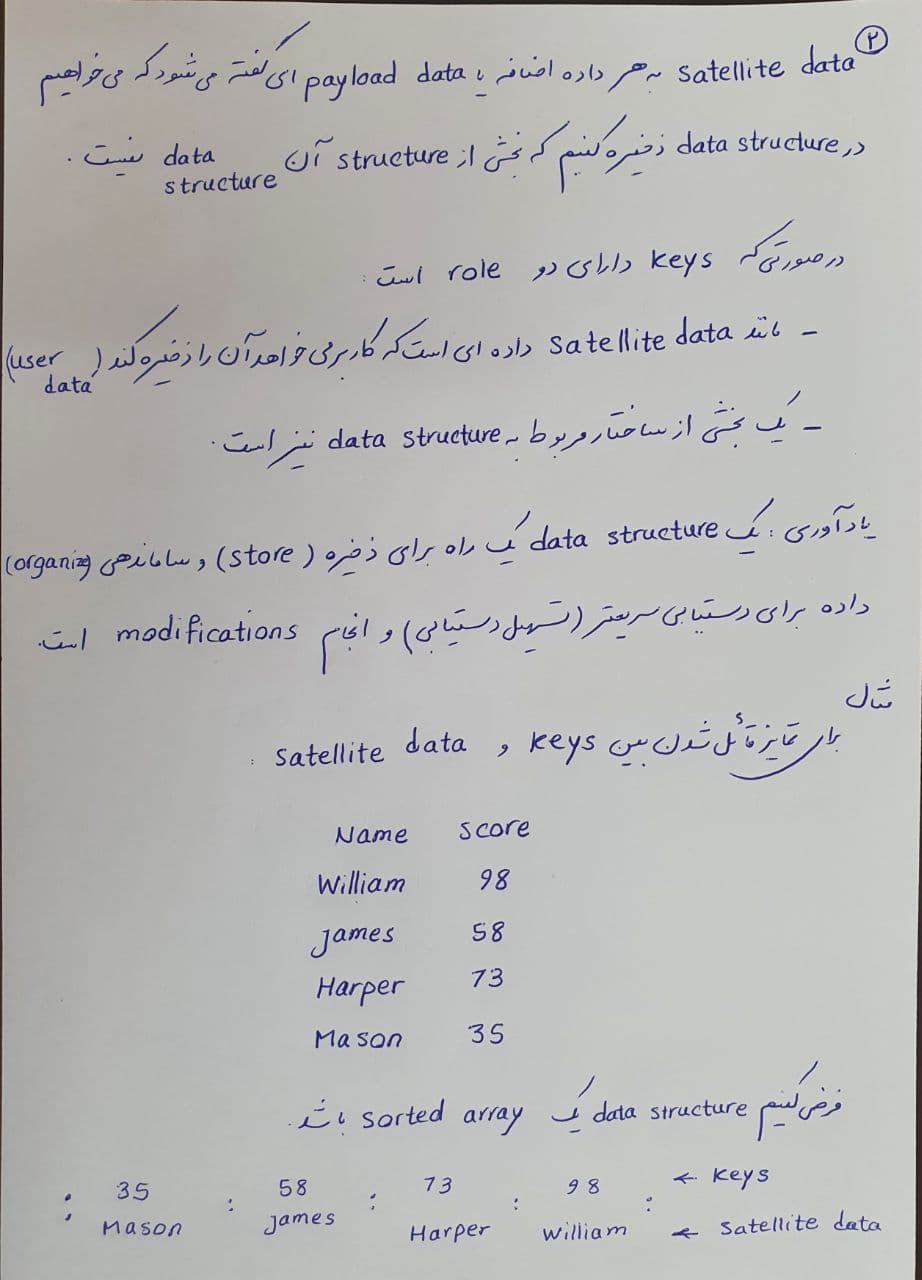 ۲
satellite data به هر داده اضافه یا payload data ای گفته می شود که می خواهیم
در data structure ذخیره کنیم که بخشی از structure آن data structure نیست .
در صورتی که keys دارای دو role است :
- مانند satellite data داده ای است که کاربر می خواهد آن را ذخیره کند (user data)
- یک بخشی از ساختار مربوط به data structure نیز است .
یادآوری : یک data structure یک راه برای ذخیره (store) و ساماندهی (organize)
داده برای دستیابی سریعتر (تسهیل دستیابی) و انجام modifications است.
مثال
برای تمایز قائل شدن بین keys و satellite data :
Name score
William 98
James 58
Harper 73
Mason 35
فرض کنیم data structure یک sorted array باشد.
: 35 : 58 : 73 : 98 : ← keys
Mason James Harper William ← Satellite data